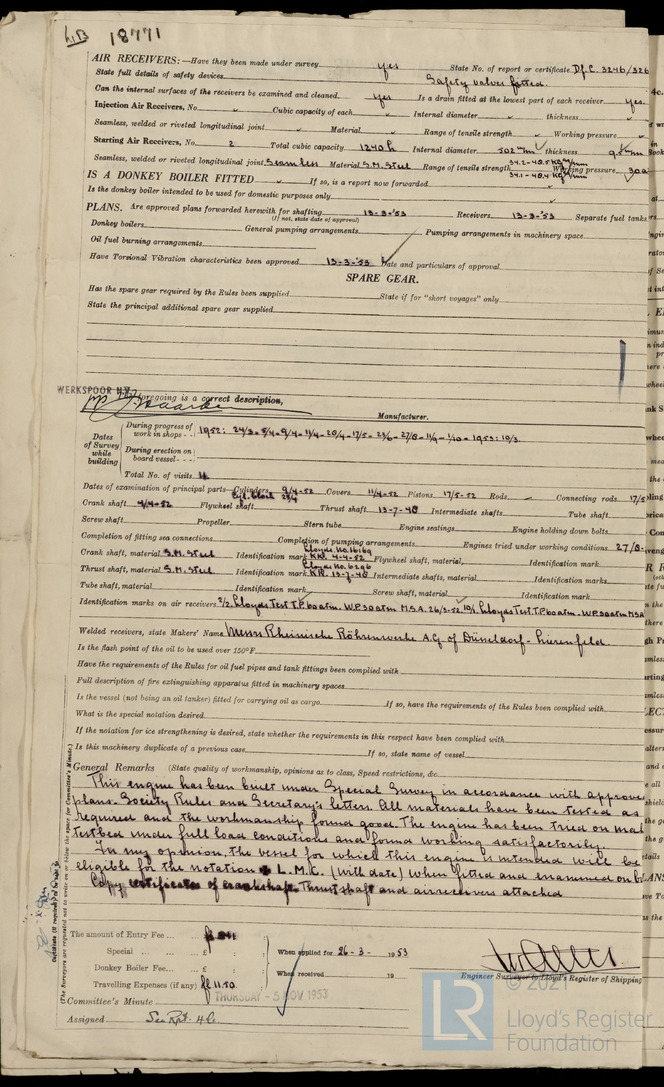 18771
AIR RECEIVERS:—Have they been made under survey yes State No. of report or certificate Df.C. 3246/326
State full details of safety devices Safety valves fitted.
Can the internal surfaces of the receivers be examined and cleaned yes Is a drain fitted at the lowest part of each receiver yes
Injection Air Receivers, No. Cubic capacity of each Internal diameter thickness
Seamless, welded or riveted longitudinal joint Material Range of tensile strength Working pressure
Starting Air Receivers, No. 2 Total cubic capacity Internal diameter 502 mm thickness
Seamless, welded or riveted longitudinal joint Seamless Material S.M. Steel Range of tensile strength 34.2-40.5 Kg/mm Working pressure
34.1-40.4 Kg/mm
IS A DONKEY BOILER FITTED If so, is a report now forwarded
Is the donkey boiler intended to be used for domestic purposes only
PLANS. Are approved plans forwarded herewith for shafting 13-3-'53 Receivers 13-3-'53 Separate fuel tanks
(If not, state date of approval)
Donkey boilers General pumping arrangements Pumping arrangements in machinery space
Oil fuel burning arrangements
Have Torsional Vibration characteristics been approved 13-3-'53 Date and particulars of approval
SPARE GEAR.
Has the spare gear required by the Rules been supplied State if for "short voyages" only
State the principal additional spare gear supplied
WERKSPOOR N.V.
The foregoing is a correct description,
Manufacturer.
Dates of Survey while building
During progress of work in shops - - 1952:
During erection on board vessel - - -
Total No. of visits
Dates of examination of principal parts—Cylinders 9/4-52 Covers 11/4-52 Pistons 17/5-52 Rods Connecting rods 17/5
Crank shaft 4/4-52 Flywheel shaft Thrust shaft 13-7-48 Intermediate shafts Tube shaft
Screw shaft Propeller Stern tube Engine seatings Engine holding down bolts
Completion of fitting sea connections Completion of pumping arrangements Engines tried under working conditions 27/8-
Lloyds No. 16169
Crank shaft, material S.M. Steel Identification mark KR. 4-4-52 Flywheel shaft, material, Identification mark
Lloyds No. 6296
Thrust shaft, material S.M. Steel Identification mark KR. 13-7-48 Intermediate shafts, material Identification marks
Tube shaft, material Identification mark Screw shaft, material Identification mark
Identification marks on air receivers Lloyds Test T.P. 60 atm. W.P. 30 atm M.S.A. 26/3-52 Lloyds Test T.P. 60 atm. W.P. 30 atm M.S.A.
Welded receivers, state Makers' Name Messrs Rheinische Röhrenwerke A.G. of Düsseldorf - Lierenfeld.
Is the flash point of the oil to be used over 150°F.
Have the requirements of the Rules for oil fuel pipes and tank fittings been complied with
Full description of fire extinguishing apparatus fitted in machinery spaces
Is the vessel (not being an oil tanker) fitted for carrying oil as cargo If so, have the requirements of the Rules been complied with
What is the special notation desired
If the notation for ice strengthening is desired, state whether the requirements in this respect have been complied with
Is this machinery duplicate of a previous case If so, state name of vessel
General Remarks (State quality of workmanship, opinions as to class, Speed restrictions, &c.
This engine has been built under Special Survey in accordance with approve
plans. Society Rules and Secretary's letters. All materials have been tested as
required and the workmanship found good. The engine has been tried on
testbed under full load conditions and found working satisfactorily.
In my opinion, the vessel for which this engine is intended will be
eligible for the notation + L.M.C. (with date) when fitted and examined on
Copy certificates of crankshaft, Thrust shaft and airreceivers attached
(The Surveyors are requested not to write on or below the space for Committee's Minute.)
The amount of Entry Fee ...
Special ... ... £
Donkey Boiler Fee... ... £
Travelling Expenses (if any) fl 11.50
When applied for 26-3-1953
When received 19
Engineer Surveyor to Lloyd's Register of Shipping
Committee's Minute THURSDAY - 5 NOV 1953
Assigned See Rpt. 4b.
© 2021
LR
Lloyd's Register
Foundation